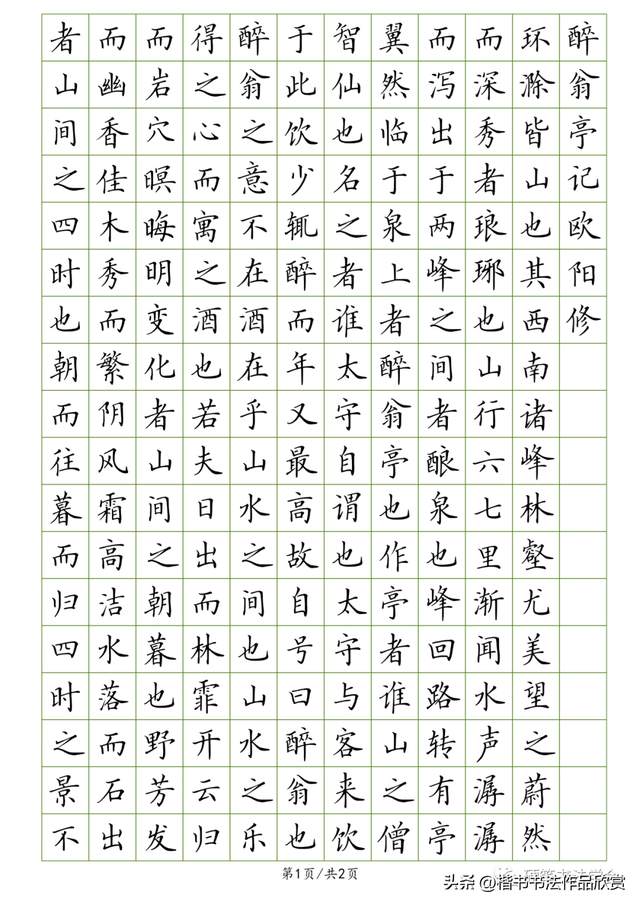 醉翁亭记欧阳修
环滁皆山也其西南诸峰林壑尤美望之蔚然
而深秀者琅琊也山行六七里渐闻水声潺潺
而泻出于两峰之间者酿泉也峰回路转有亭
翼然临于泉上者醉翁亭也作亭者谁山之僧
智仙也名之者谁太守自谓也太守与客来饮
于此饮少辄醉而年又最高故自号曰醉翁也
醉翁之意不在酒在乎山水之间也山水之乐
得之心而寓之酒也若夫日出而林霏开云归
而岩穴暝晦明变化者山间之朝暮也野芳发
而幽香佳木秀而繁阴风霜高洁水落而石出
者山间之四时也朝而往暮而归四时之景不
第1页/共2页
头条 @楷书书法作品欣赏